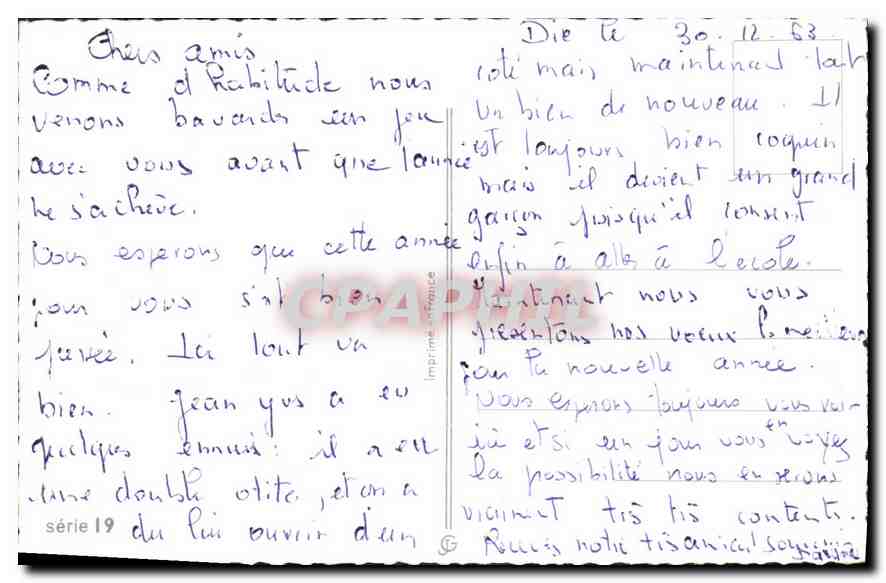 Chers amis
Comme d'habitude nous
venons bavarder un peu
avec vous avant que l'année
ne s'achève.
Nous esperons que cette année
pour vous s'est bien
passée. Ici tout va
bien. Jean yves a eu
quelques ennuis: il a eu
une double otite, et on a
du lui ouvrir d'un
série 19
Imprimé en France
CPAPHIL
Die le 30.12.63
coté mais maintenant tout
va bien de nouveau. Il
est toujours bien coquin
mais il devient un grand
garçon puisqu'il consent
enfin à aller à l'ecole.
Maintenant nous vous
présentons nos voeux les meilleurs
pour la nouvelle année.
Nous esperons toujours vous voir
ici et si un jour vous en voyez
la possibilité nous en serions
vraiment très très contents.
Recevez notre très amical souvenir